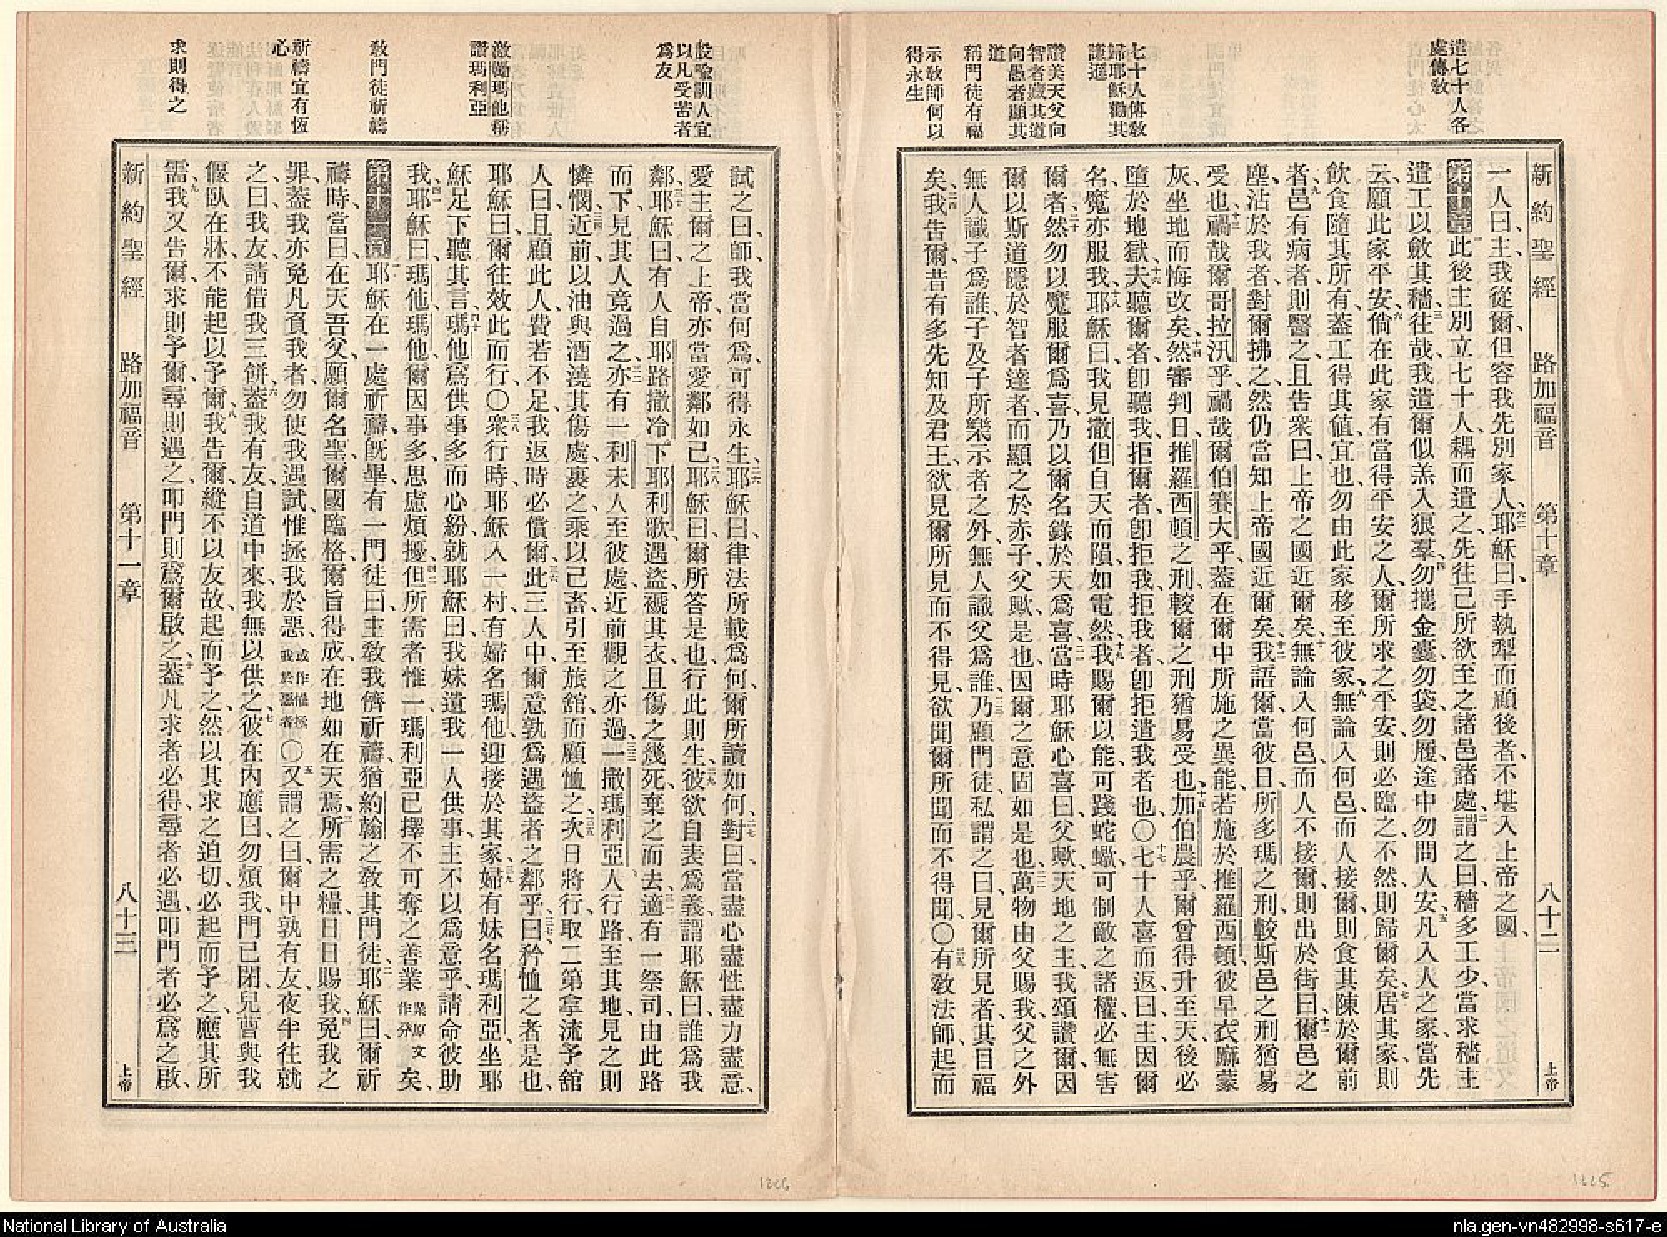 新約聖經 路加福音 第十章 八十二 上帝
遣七十人各
處傳教
七十人傳教
歸耶穌勸其
謹適
讚美天父向
智者藏其道
向愚者顯其
道
稱門徒有福
示教師何以
得永生
一人曰、主、我從爾、但容我先別家人、六二耶穌曰、手執犁而顧後者、不堪入上帝之國、
第十章一此後主別立七十人、耦而遣之、先往己所欲至之諸邑諸處、二謂之曰、穡多工少、當求穡主
遣工以斂其穡、三往哉、我遣爾似羔入狼羣、四勿攜金囊、勿袋、勿履、途中勿問人安、五凡入人之家、當先
云、願此家平安、六倘在此家有當得平安之人、爾所求之平安、則必臨之、不然、則歸爾矣、七居其家、則
飲食隨其所有、蓋工得其値宜也、勿由此家移至彼家、八無論入何邑、而人接爾、則食其陳於爾前
者、九邑有病者、則醫之、且告衆曰、上帝之國近爾矣、十無論入何邑、而人不接爾、則出於街曰、十一爾邑之
塵、沾於我者、對爾拂之、然仍當知上帝國近爾矣、十二我語爾、當彼日、所多瑪之刑、較斯邑之刑猶易
受也、十三禍哉爾哥拉汛乎、禍哉爾伯賽大乎、蓋在爾中所施之異能、若施於推羅西頓、彼早衣麻蒙
灰、坐地而悔改矣、十四然審判日、推羅西頓之刑、較爾之刑猶易受也、十五加伯農乎、爾曾得升至天、後必
墮於地獄、十六夫聽爾者、卽聽我、拒爾者、卽拒我、拒我者、卽拒遣我者也、〇十七七十人喜而返曰、主、因爾
名、魔亦服我、十八耶穌曰、我見撒但自天而隕、如電然、十九我賜爾以能、可踐蛇蠍、可制敵之諸權、必無害
爾者、二十然勿以魔服爾爲喜、乃以爾名錄於天爲喜、二一當時耶穌心喜曰、父歟、天地之主、我頌讚爾、因
爾以斯道隱於智者達者、而顯之於赤子、父歟是也、因爾之意固如是也、二二萬物由父賜我、父之外
無人識子爲誰、子及子所樂示者之外、無人識父爲誰、二三乃顧門徒、私謂之曰、見爾所見者、其目福
矣、二四我告爾、昔有多先知及君王、欲見爾所見而不得見、欲聞爾所聞而不得聞、〇二五有教法師、起而
設喩訓人宜
以凡受苦者
爲友
激勵瑪他稱
讚瑪利亞
教門徒祈禱
祈禱宜有恆
心
求則得之
試之曰、師、我當何爲、可得永生、二六耶穌曰、律法所載爲何、爾所讀如何、二七對曰、當盡心盡性盡力盡意、
愛主爾之上帝、亦當愛鄰如己、二八耶穌曰、爾所答是也、行此則生、二九彼欲自表爲義、謂耶穌曰、誰爲我
鄰、三十耶穌曰、有人自耶路撒冷下耶利歌、遇盜、褫其衣、且傷之、幾死、棄之而去、三一適有一祭司由此路
而下、見其人竟過之、三二亦有一利未人至彼處、近前觀之、亦過、三三一撒瑪利亞人行路至其地、見之則
憐憫、三四近前以油與酒澆其傷處、裹之、乘以己畜、引至旅舘而顧恤之、三五次日將行、取二第拿流予舘
人曰、且顧此人、費若不足、我返時必償爾、三六此三人中、爾意孰爲遇盜者之鄰乎、三七曰、矜恤之者是也、
耶穌曰、爾往效此而行、〇三八衆行時、耶穌入一村、有婦名瑪他、迎接於其家、三九婦有妹名瑪利亞、坐耶
穌足下聽其言、四十瑪他爲供事多而心紛、就耶穌曰、我妹遺我一人供事、主不以爲意乎、請命彼助
我、四一耶穌曰、瑪他瑪他、爾因事多思慮煩擾、四二但所需者惟一、瑪利亞已擇不可奪之善業業原文作分矣、
第十一章一耶穌在一處祈禱旣畢、有一門徒曰、主、教我儕祈禱、猶約翰之教其門徒、二耶穌曰、爾祈
禱時當曰、在天吾父、願爾名聖、爾國臨格、爾旨得成、在地如在天焉、三所需之糧、日日賜我、四免我之
罪、蓋我亦免凡負我者、勿使我遇試、惟拯我於惡、或作惟拯我於惡者〇五又謂之曰、爾中孰有友、夜半往就
之曰、我友、請借我三餅、六蓋我有友、自道中來、我無以供之、七彼在內應曰、勿煩我、門已閉、兒曹與我
偃臥在牀、不能起以予爾、八我告爾、縱不以友故起而予之、然以其求之迫切、必起而予之、應其所
需、九我又告爾、求則予爾、尋則遇之、叩門則爲爾啟之、十蓋凡求者必得、尋者必遇、叩門者必爲之啟、
新約聖經 路加福音 第十一章 八十三 上帝
1226
1225
National Library of Australia
nla.gen-vn482998-s617-e